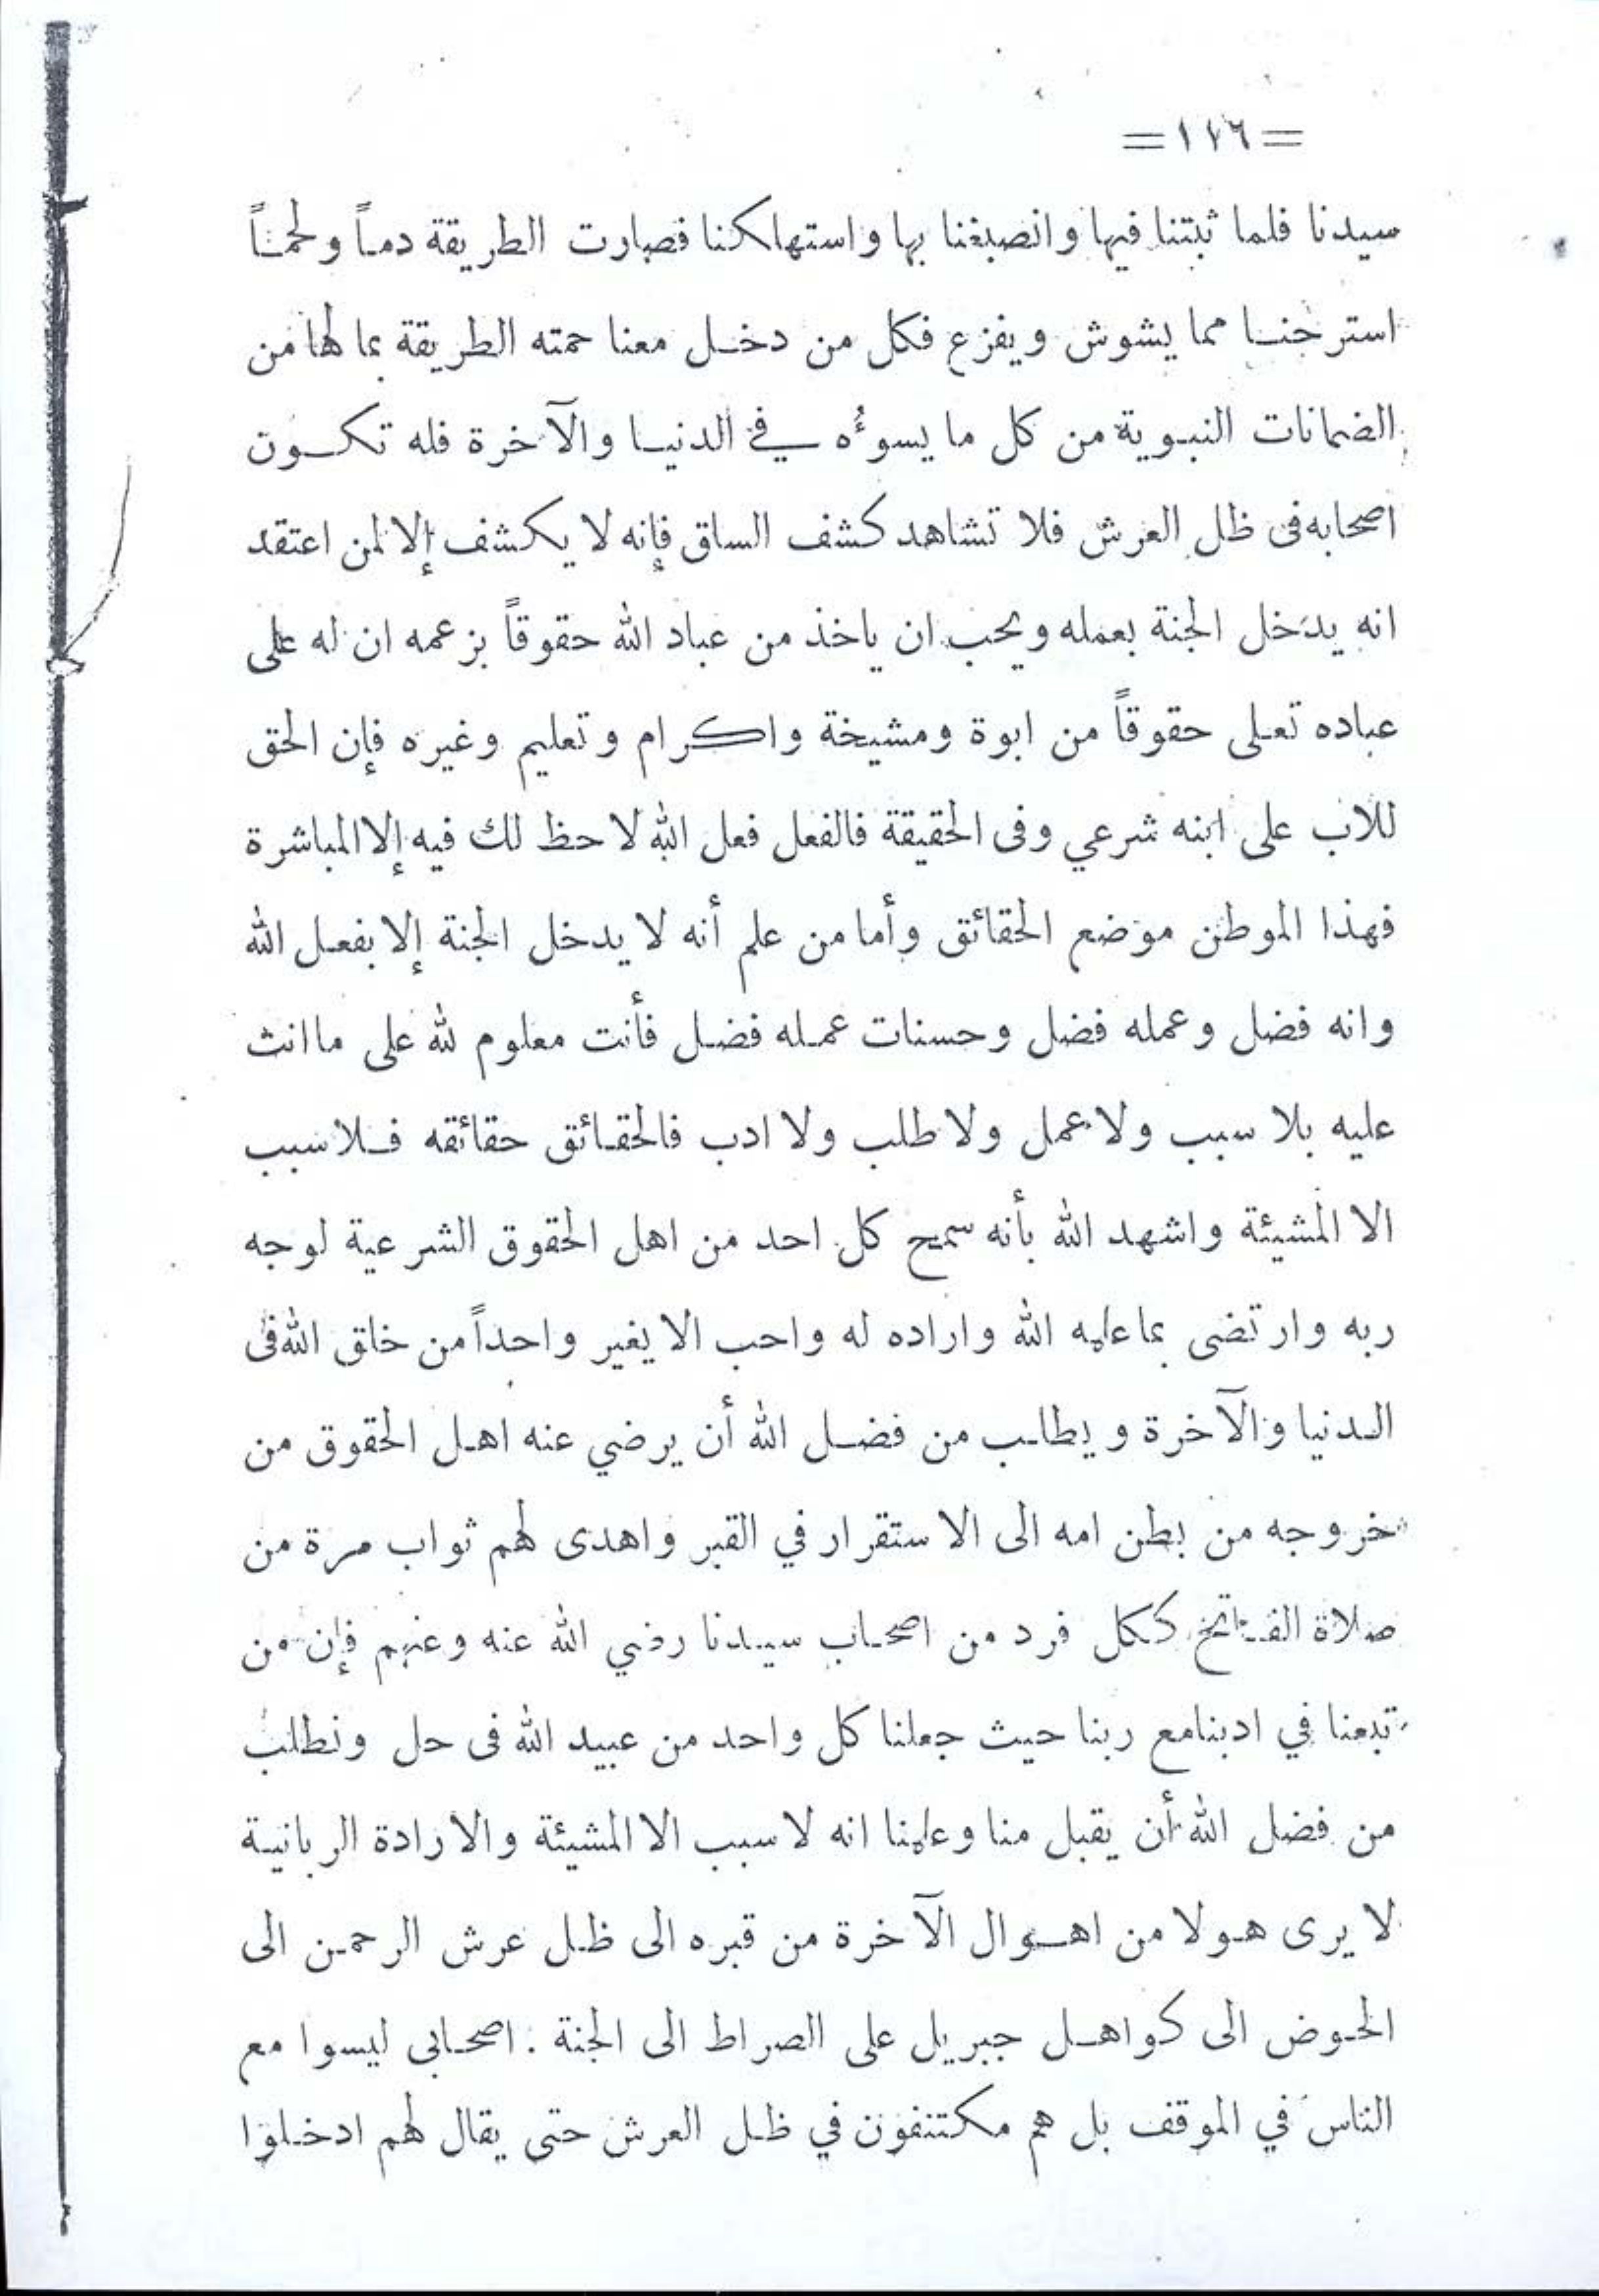 =١٧٦=
سيدنا فلما ثبتنا فيها وانصبغنا بها واستهلكنا فصارت الطريقة دماً ولحماً
استرحنا مما يشوش ويفزع فكل من دخل معنا حمته الطريقة بما لها من
الضمانات النبوية من كل ما يسوءُه في الدنيا والآخرة فله تكون
اصحابه فى ظل العرش فلا تشاهد كشف الساق فإنه لا يكشف إلا لمن اعتقد
انه يدخل الجنة بعمله ويحب ان ياخذ من عباد الله حقوقاً بزعمه ان له على
عباده تعلى حقوقاً من ابوة ومشيخة واكرام وتعليم وغيره فإن الحق
للاب على ابنه شرعي وفى الحقيقة فالفعل فعل الله لا حظ لك فيه إلا المباشرة
فهذا الموطن موضع الحقائق وأما من علم أنه لا يدخل الجنة إلا بفعل الله
وانه فضل وعمله فضل وحسنات عمله فضل فأنت معلوم لله على ما انت
عليه بلا سبب ولا عمل ولا طلب ولا ادب فالحقائق حقائقه فلا سبب
الا المشيئة واشهد الله بأنه سمح كل احد من اهل الحقوق الشرعية لوجه
ربه وارتضى بما علمه الله واراده له واحب الا يغير واحداً من خلق الله فى
الدنيا والآخرة ويطلب من فضل الله أن يرضي عنه اهل الحقوق من
خروجه من بطن امه الى الاستقرار في القبر واهدى لهم ثواب مرة من
صلاة الفاتح ككل فرد من اصحاب سيدنا رضي الله عنه وعنهم فإن من
تبعنا في ادبنا مع ربنا حيث جعلنا كل واحد من عبيد الله فى حل ونطلب
من فضل الله أن يقبل منا وعلمنا انه لا سبب الا المشيئة والارادة الربانية
لا يرى هولا من اهوال الآخرة من قبره الى ظل عرش الرحمن الى
الحوض الى كواهل جبريل على الصراط الى الجنة : اصحابى ليسوا مع
الناس في الموقف بل هم مكتنفون في ظل العرش حتى يقال لهم ادخلوا